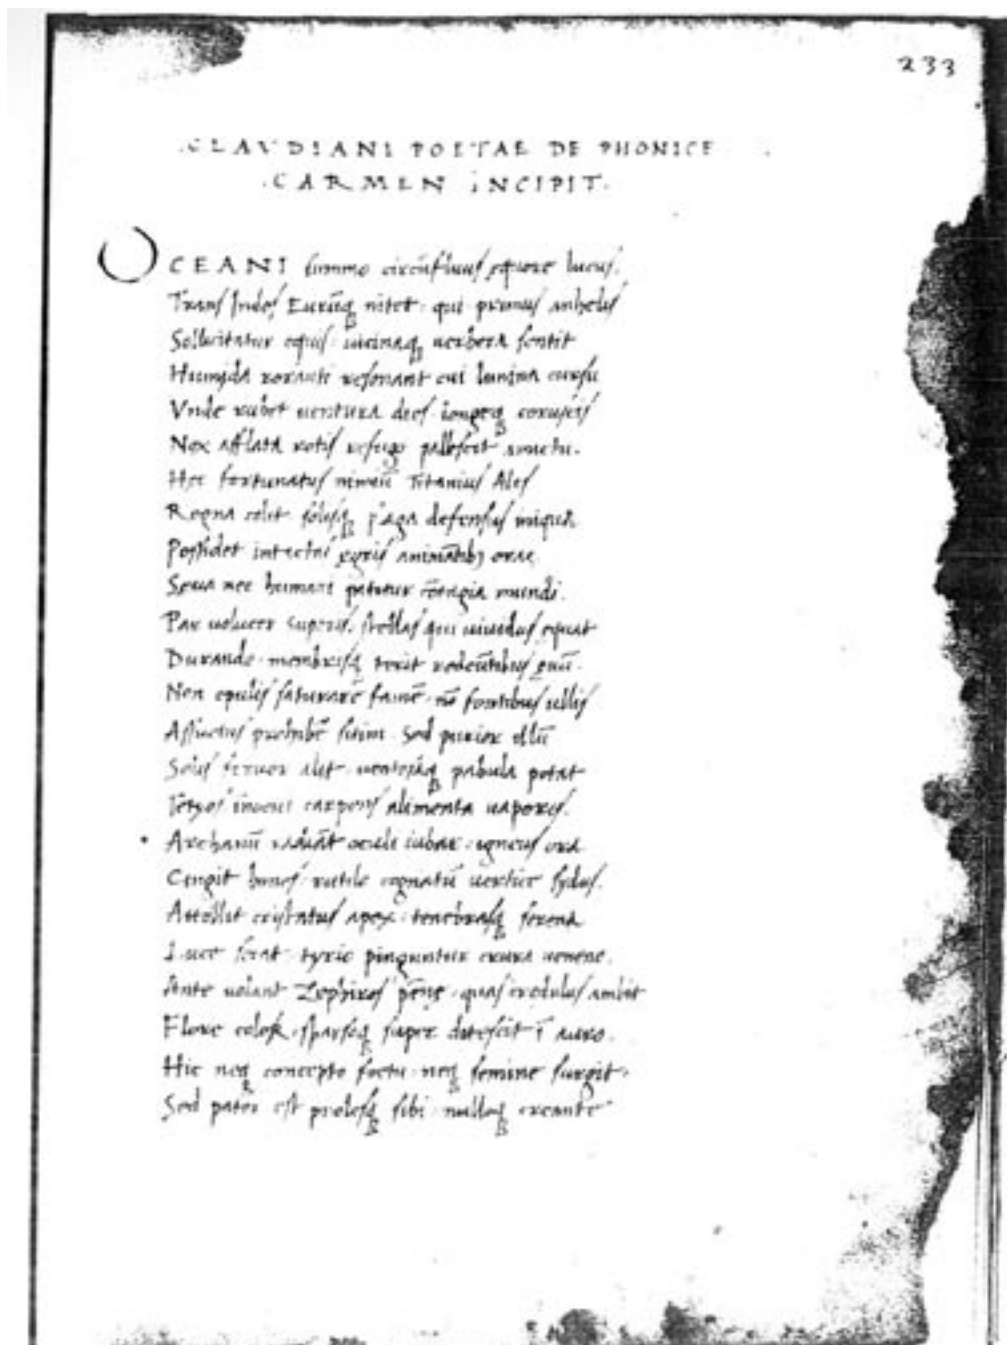 233
.CLAVDIANI POETAE DE PHONICE.
.CARMEN INCIPIT.
OCEANI summo circũfluus ęquore lucus.
Trans Indos Eurũq nitet. qui primus anhelis
Sollicitatur equis. uicinaq uerbera sentit
Humida roranti resonant cui lumina cursu
Vnde rubet uentura dies. longeq coruscis
Nox afflata rotis refugo pallescit amictu.
Hec fortunatus nimiũ Titanius Ales
Regna colit. solusq plaga defensus iniqua
Possidet intactas ęgris animãtibꝫ oras
Seua nec humani patitur cõtagia mundi.
Par uolucer superis. stellas qui uiuidus equat
Durando. membrisq terit redeũtibus ęuũ.
Non epulis saturare famẽ. nõ fontibus ullis
Assuetus prohibẽ sitim. Sed purior illũ
Solis feruor alit. uentosaq pabula potat
Tetyos innocui carpens alimenta uaporis.
Archanũ radiãt oculi iubar. igneus ora
Cingit honos. rutilo cognatũ uertice sydus.
Attollit cristatus apex. tenebrasq serena
Luce secat. tyrio pinguntur crura ueneno.
Ante uolant Zephiros pẽnę. quas credulus ambit
Flore color. sparsoq super ditescit ĩ auro.
Hic neq concepto foetu. neq semine surgit.
Sed pater est prolesq sibi. nulloq creante